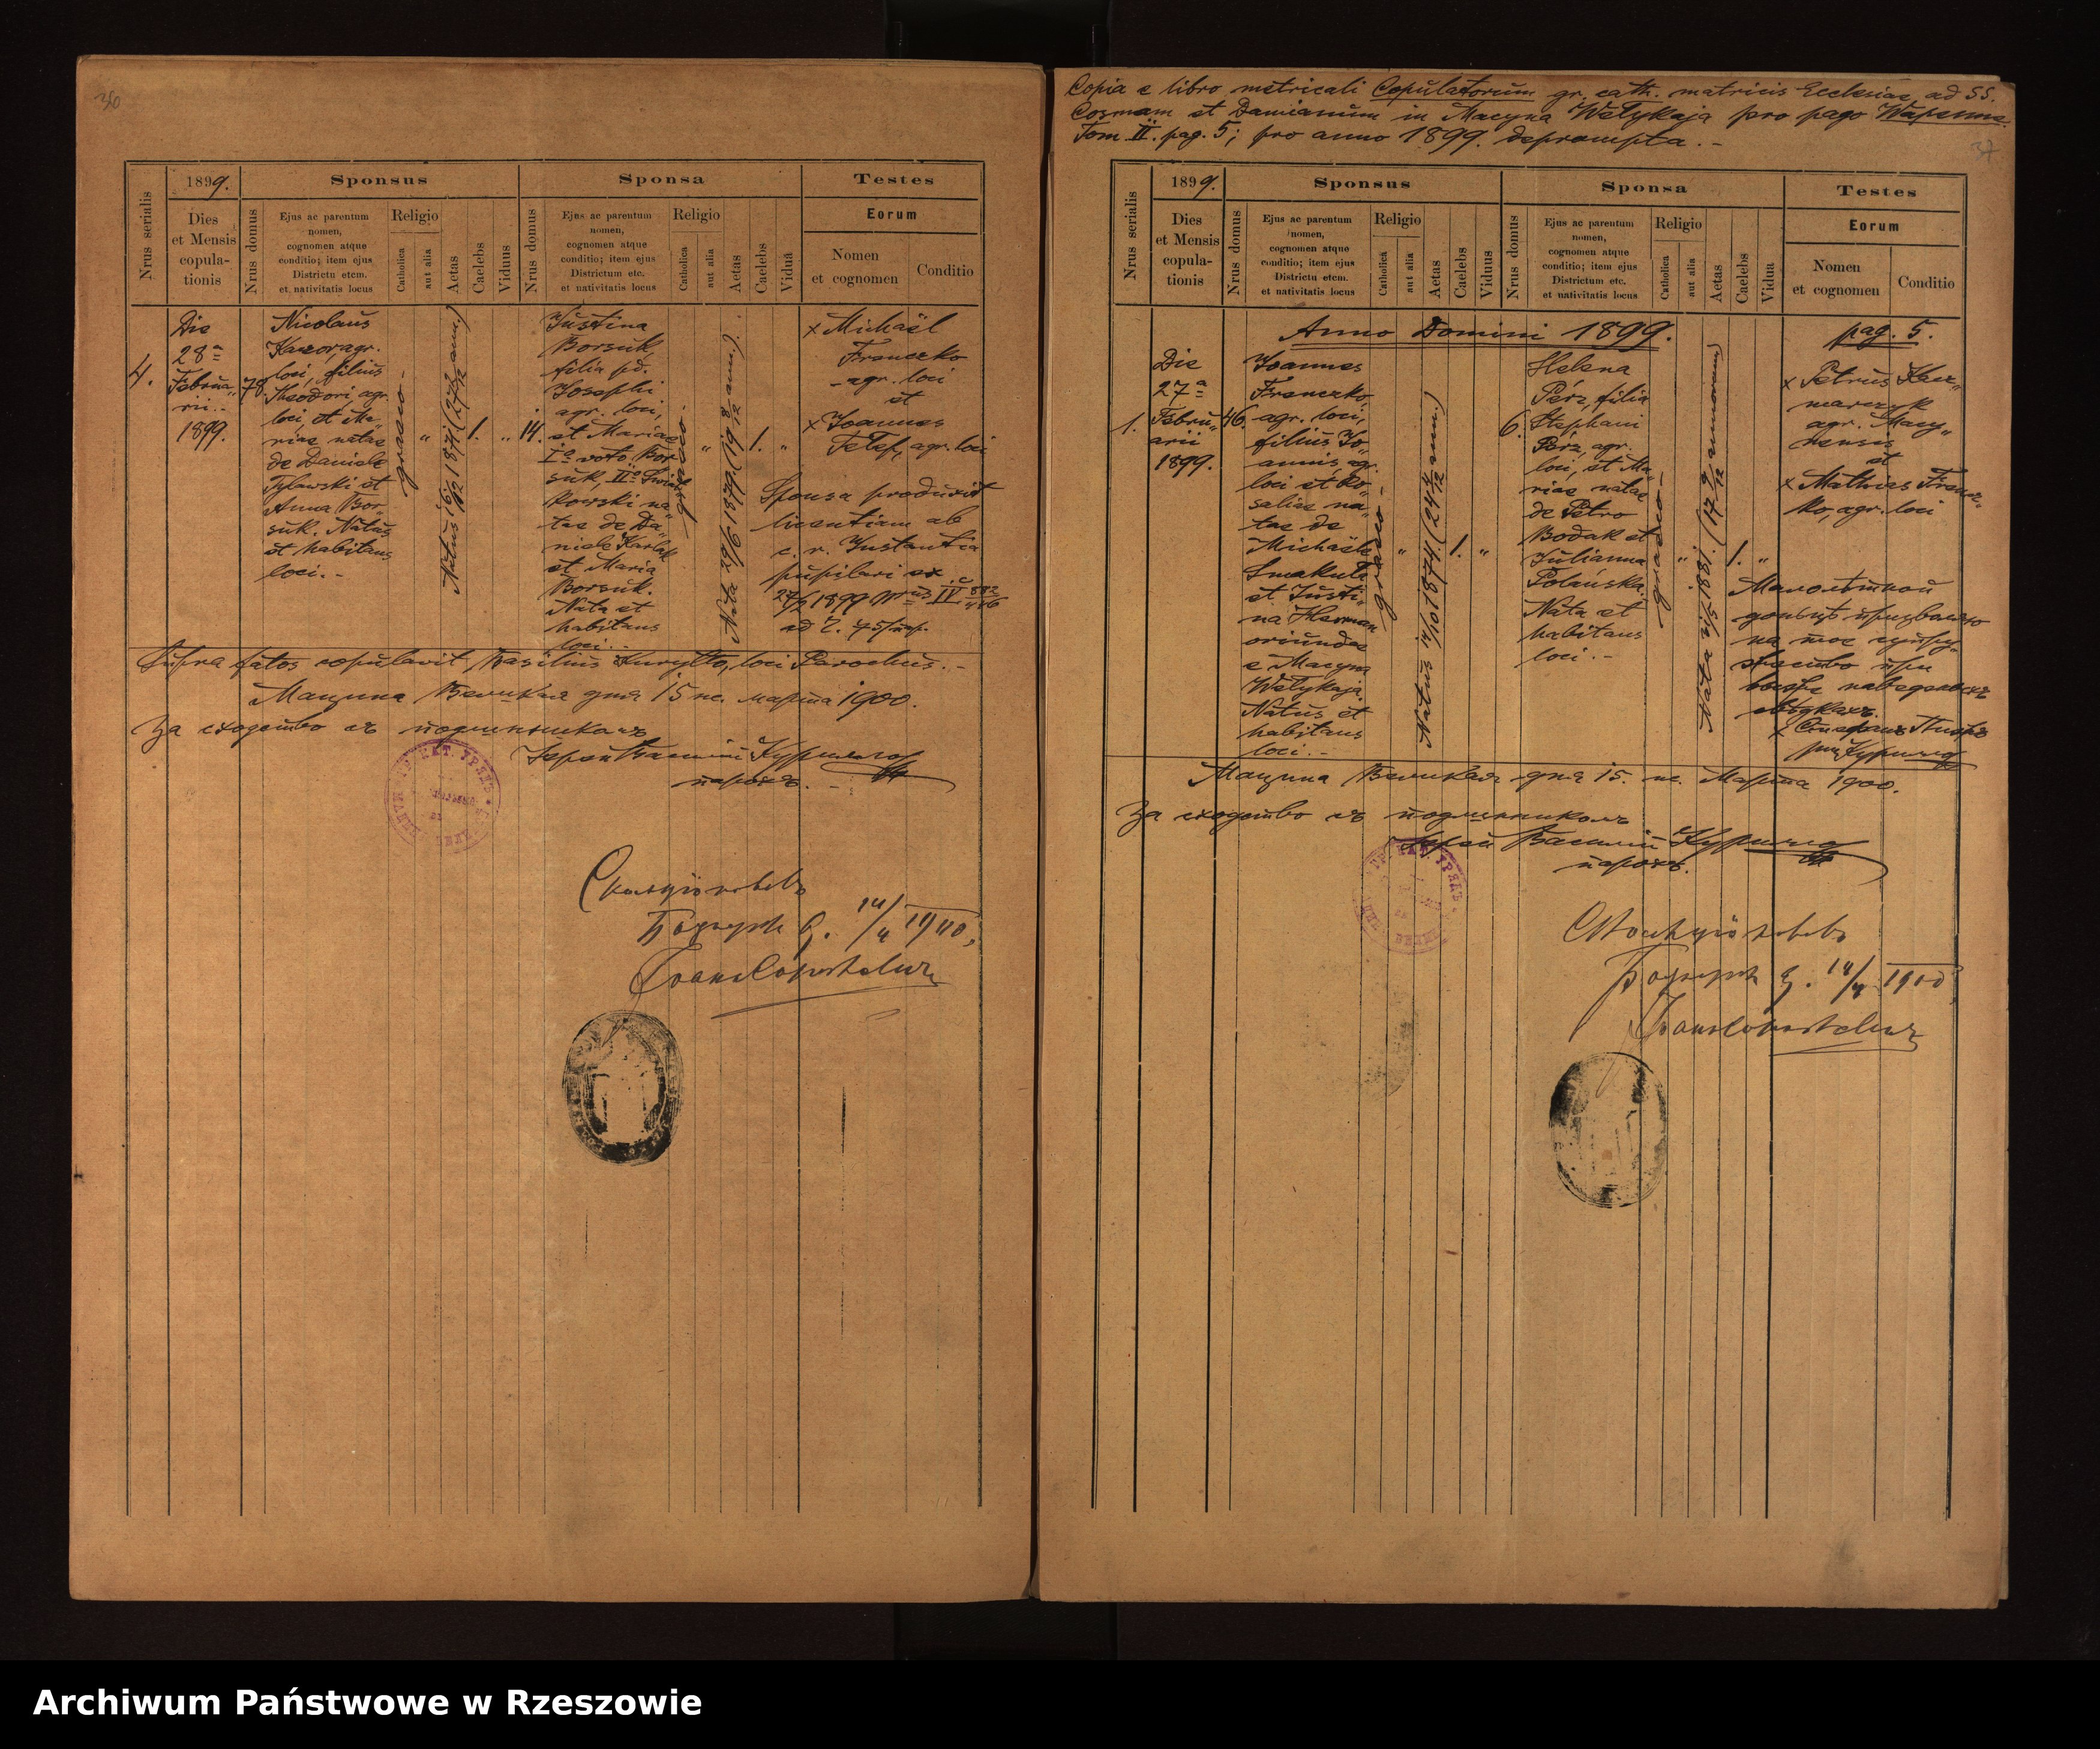 36
1899.
Sponsus
Sponsa
Testes
Nrus serialis
Dies
et Mensis
copula-
tionis
Nrus domus
Ejus ac parentum
nomen,
cognomen atque
conditio; item ejus
Districtu etcm.
et nativitatis locus
Religio
Catholica
aut alia
Aetas
Caelebs
Viduus
Nrus domus
Ejus ac parentum
nomen,
cognomen atque
conditio; item ejus
Districtum etc.
et nativitatis locus
Religio
Catholica
aut alia
Aetas
Caelebs
Vidua
Eorum
Nomen
et cognomen
Conditio
4.
Die
28a
Februa„
rii.-
1899.
78.
Nicolaus
Kaczor, agr.
loci, filius
Theodori agr.
loci, et Ma„
riae natae
de Daniele
Dylawski et
Anna Bor„
suk. Natus
et habitans
loci.-
graeco-
„
Natus 16/12 1871 (27 2/12 ann.)
1.
„
14.
Justina
Borsuk,
filia pd.
Josephi
agr. loci,
et Mariae
Io voto Bor„
suk, IIo
na„
tae de Da„
niele Karlak
et Maria
Borsuk.
Nata et
habitans
loci.-
graeco.
„
Nata 29/6 1879. (19 8/12 ann.).
1.
„
x Michaël
Franczko
- agr. loci
et
x Joannes
Telef, agr. loci
Sponsa produxit
licentiam ab
c. r. Instantia
pupilari ex
27/2 1899 Nrus IV 882/486
Supra fatos copulavit, Basilius Kuryłło, loci Parochus.-
Мацина Великая дня 15 не. марта 1900.
За сходство съ подлинникомъ
Іерей Василій Курилло
парохъ.-
14/4 1900,
Copia e libro metricali Copulatorum gr. cath. matricis Ecclesiae ad SS.
Cosmam et Damianum in Macyna Wełykaja pro pago Wapenne.
Tom. II. pag. 5; pro anno 1899. deprompta.-
37
1899.
Sponsus
Sponsa
Testes
Nrus serialis
Dies
et Mensis
copula-
tionis
Nrus domus
Ejus ac parentum
nomen,
cognomen atque
conditio; item ejus
Districtu etcm.
et nativitatis locus
Religio
Catholica
aut alia
Aetas
Caelebs
Viduus
Nrus domus
Ejus ac parentum
nomen,
cognomen atque
conditio; item ejus
Districtum etc.
et nativitatis locus
Religio
Catholica
aut alia
Aetas
Caelebs
Vidua
Eorum
Nomen
et cognomen
Conditio
Anno Domini 1899.
pag. 5.
1.
Die
27a
Febru„
arii
1899.
46.
Joannes
Franczko,
agr. loci,
filius Jo„
annis, agr.
loci et Ro„
saliae na„
tae de
Michaële
Smakula
et Justi„
na Herman
oriunda
e Macyna
Wełykaja.
Natus et
habitans
loci.-
graeco-
„
Natus 14/10 1874. (24 4/12 ann.)
1.
„
6.
Helena
Pérz, filia
Stephani
Pérz, agr.
loci, et Ma„
riae natae
de Petro
Bodak et
Julianna
Polańska.
Nata et
habitans
loci.-
graeco-
„
Nata 21/5 1881. (17 9/12 annorum)
1.
„
x Petrus Kacz„
marczyk
agr. Macy„
nensis
et
x Mathias Francz„
ko, agr. loci
Мацина Великая дня 15. не. Марта 1900.
За сходство съ подлинникомъ
Іерей Василій Курилло
парохъ.
14/4 1900
Archiwum Państwowe w Rzeszowie